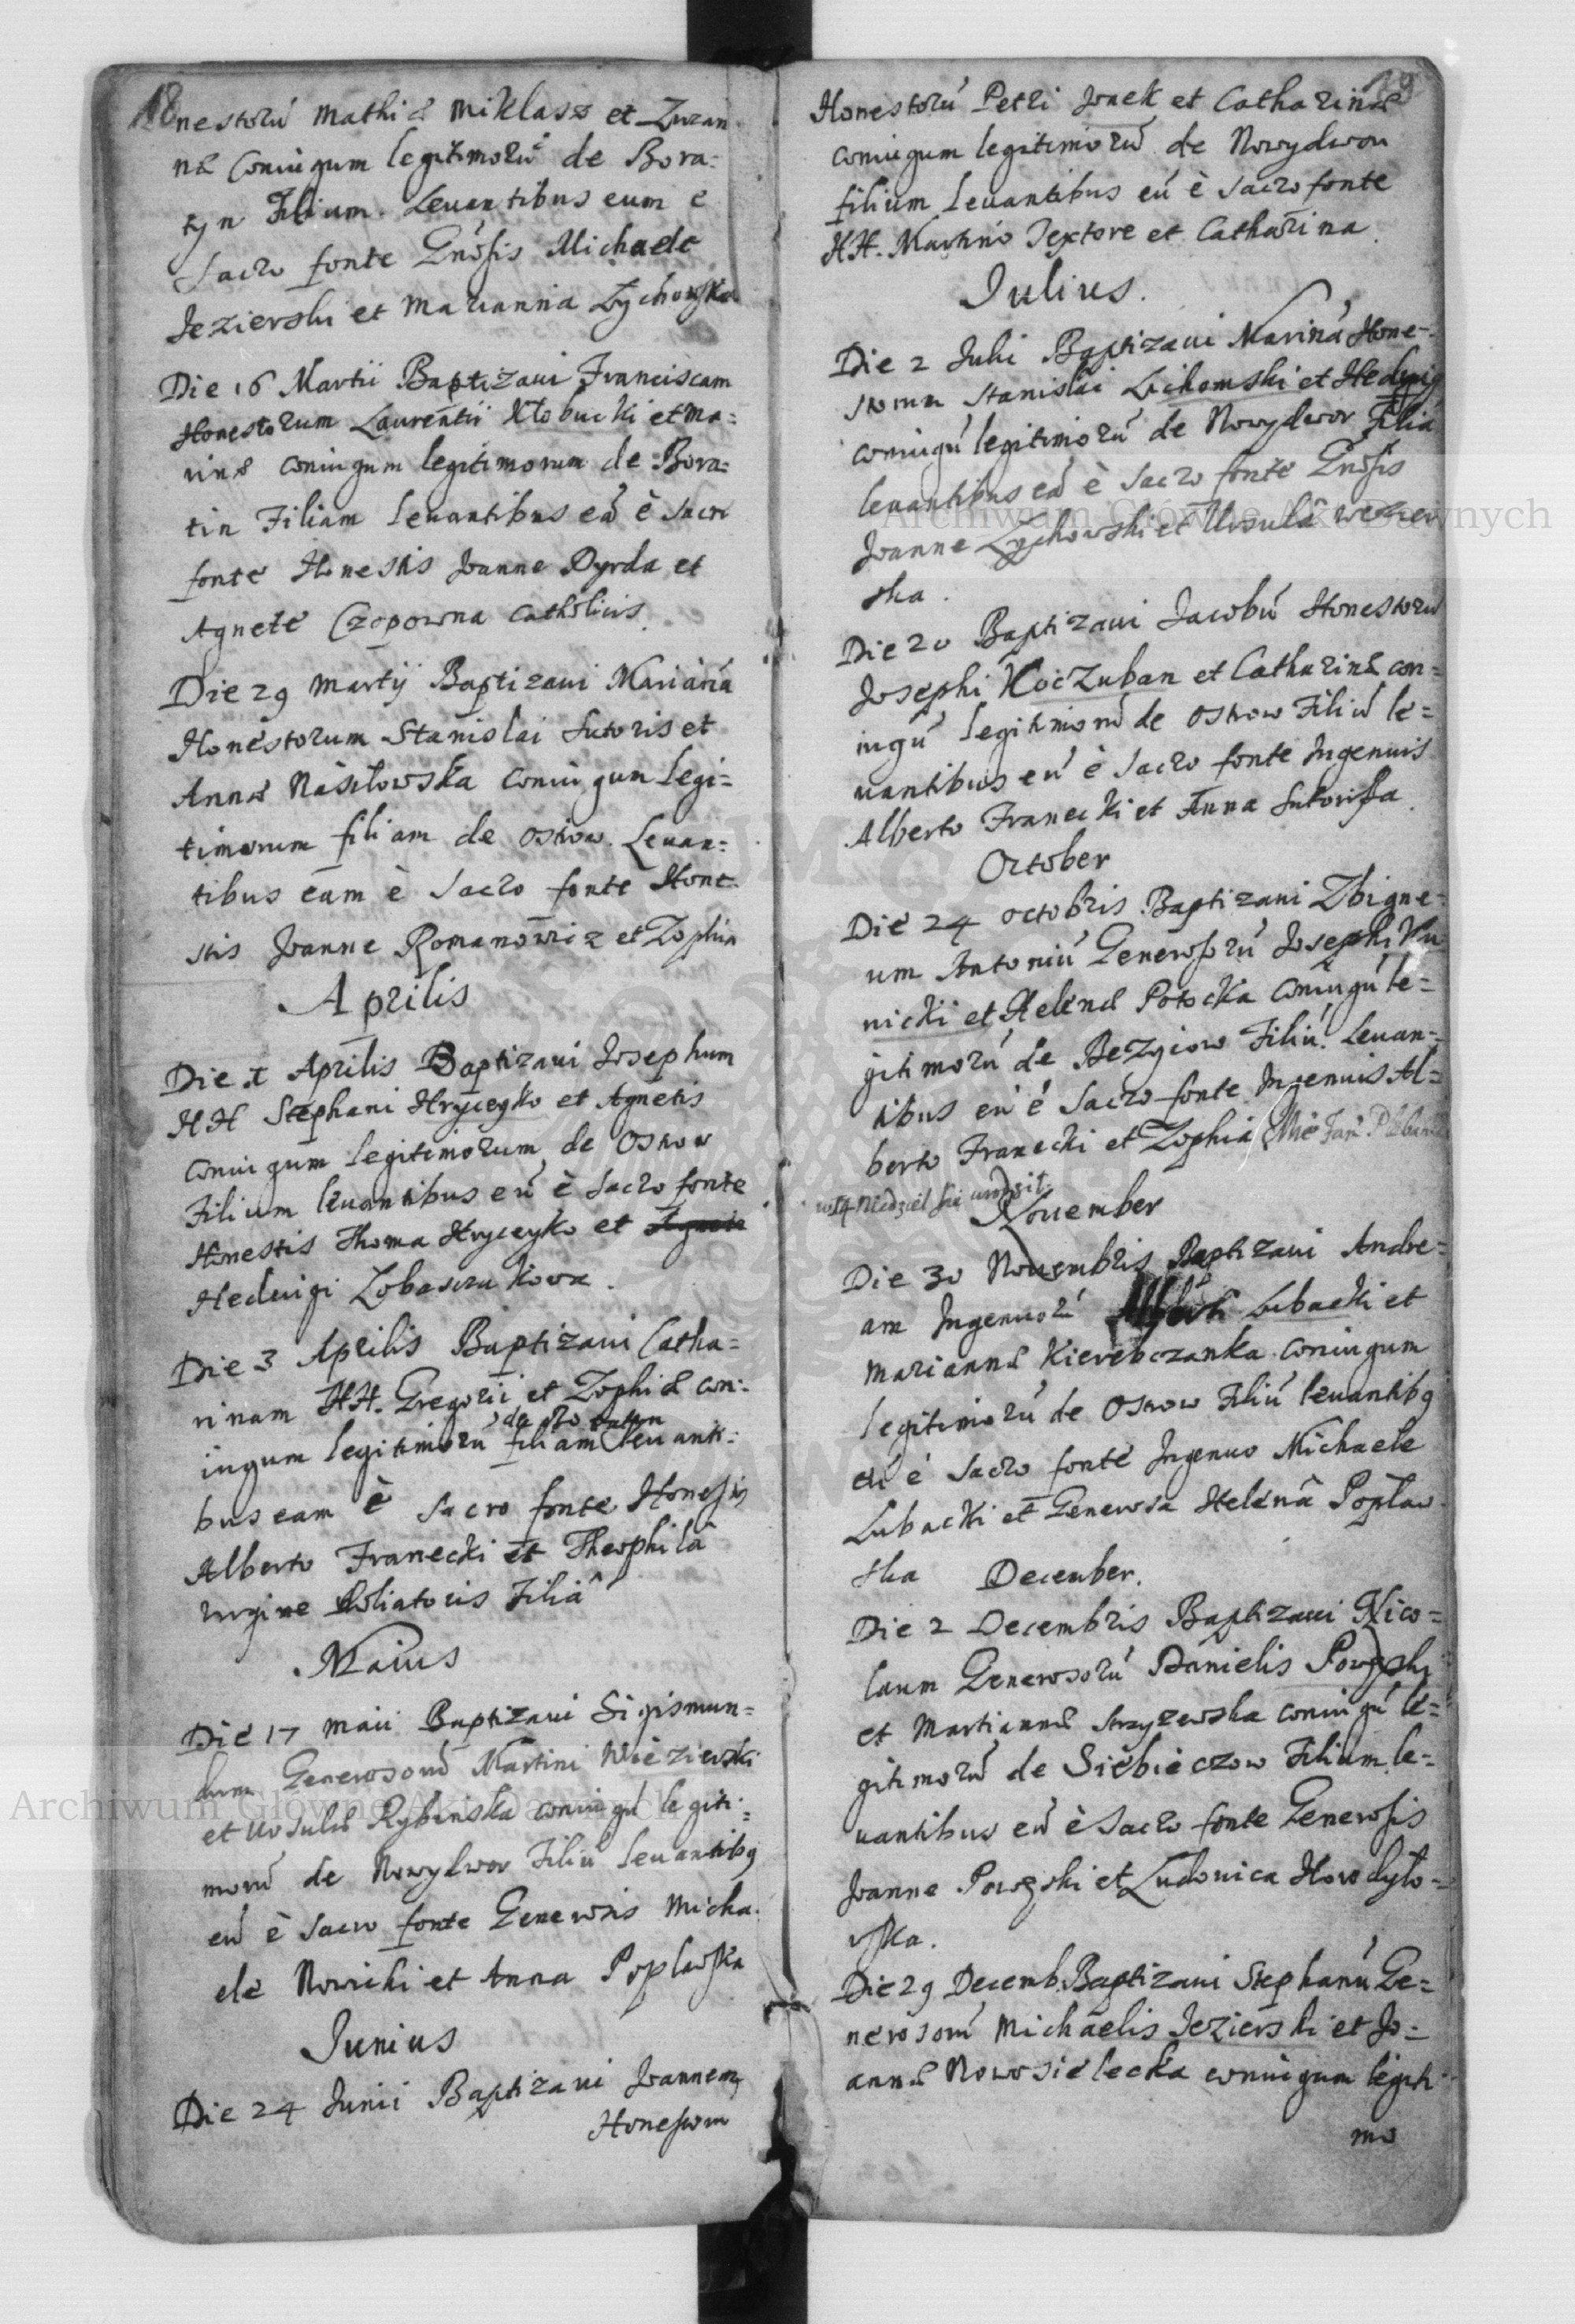 18
nestorũ Mathiæ Miklasz et Zuzan
næ Coniugum legitimorũ de Bora=
tyn Filium. Levantibus eum è
Sacro fonte Gnosis Michaele
Jezierski et Marianna Zychowska
Die 16 Martii Baptizavi Franciscam
Honestorum Laurentii Kłobucki et Ma=
rinæ coniugum legitimorum de Bora=
tin Filiam levantibus eã è sacro
fonte Honestis Joanne Dyrda et
Agnete Czopowna Catholicis
Die 29 Martij Baptizavi Marianã
Honestorum Stanislai Sutoris et
Annæ Nasiłowska coniugum legi=
timorum filiam de Ostrow. Levan=
tibus eam è Sacro fonte Hone
stis Joanne Romanowicz et Zophia
Aprilis
Die 1 Aprilis Baptizavi Josephum
HH Stephani Hryceyko et Agnetis
coniugum legitimorum de Ostrow
Filium levantibus eũ è sacro fonte
Honestis Thoma Hryceyko et Agnete
Hedvigi
Die 3 Aprilis Baptizavi Catha=
rinam HH. Gregorii et Zophiæ con=
iugum legitimorũ filiam levanti=
bus eam è Sacro fonte Honestis
Alberto Franecki et Theophilâ
virgine Filiâ
Maius
Die 17 Maii Baptizavi Sigismun=
dum Generosorũ Martini Wiezierski
et Ursulæ Rybinska coniugũ legiti=
morũ de Nowydwor Filiũ levantibq
eũ è Sacro fonte Generosis Micha
ele Nowicki et Anna Popławska
Junius
Die 24 Junii Baptizavi Joannem
Honestorum
19
Honestorũ Petri Jonek et Catharinæ
coniugum legitimorũ de Nowydwor
filium levantibus eũ è sacro fonte
HH. Martino Textore et Catharina.
Julius.
Die 2 Julii Baptizavi Marinã Hone=
storum Stanislai Lichowski et Hedvig
coniugũ legitimorũ de Nowydwor Filiã
levantibus eã è Sacro fonte Gnosis
Joanne Zychowski et Ursulâ Wezier
ska.
Die 20 Baptizavi Jacobũ Honestorũ
Josephi Koczuban et Catharinæ con=
iugũ legitimorũ de Ostrow Filiũ le=
vantibus eũ è Sacro fonte Ingenuis
Alberto Franecki et Anna Sutorissa.
October
Die 24 Octobris Baptizavi Zbigne=
um Antoniũ Generosorũ Josephi Ku
nicki et Helenæ Potocka coniugũ le=
gitimorũ de Bezyiow Filiũ. Levan=
tibus eũ è Sacro fonte Ingenuis Al=
berto Franecki et Zophia
w 14 Niedziel się urodził
November
Die 30 Novembris Baptizavi Andre=
am Ingenuorũ Alberti Lubacki et
Mariannæ Kierebczanka coniugum
legitimorũ de Ostrow Filiũ levantibq
eũ è Sacro fonte Ingenuo Michaele
Lubacki et Generosa Helenâ Popław
ska December.
Die 2 Decembris Baptizavi Nico=
laum Generosorũ Danielis Powęski
et Martiannæ Strzyzewska coniugũ le=
gitimorũ de Siebieczow Filium le=
vantibus eũ è Sacro fonte Generosis
Joanne Powęski et Ludovica Horodyło=
wska.
Die 29 Decemb. Baptizavi Stephanũ Ge=
nerosorũ Michaelis Jezierski et Jo=
annæ Nowosielecka coniugum legiti
mo
Archiwum Główne Akt Dawnych
Archiwum Główne Akt Dawnych